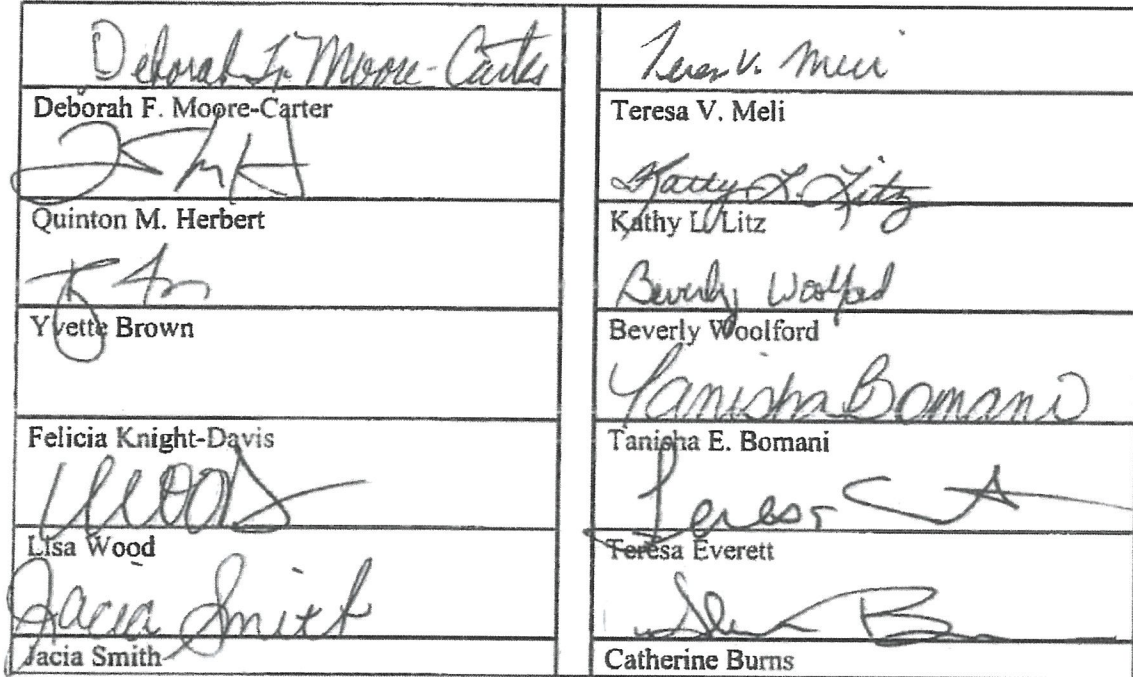 Deborah F. Moore-Carter
Deborah F. Moore-Carter
Quinton M. Herbert
Yvette Brown
Felicia Knight-Davis
Wood
Lisa Wood
Jacia Smith
Jacia Smith
Teresa V. Meli
Teresa V. Meli
Kathy L. Litz
Kathy L. Litz
Beverly Woolford
Beverly Woolford
Tanisha Bomani
Tanisha E. Bomani
Teresa
Teresa Everett
Catherine Burns